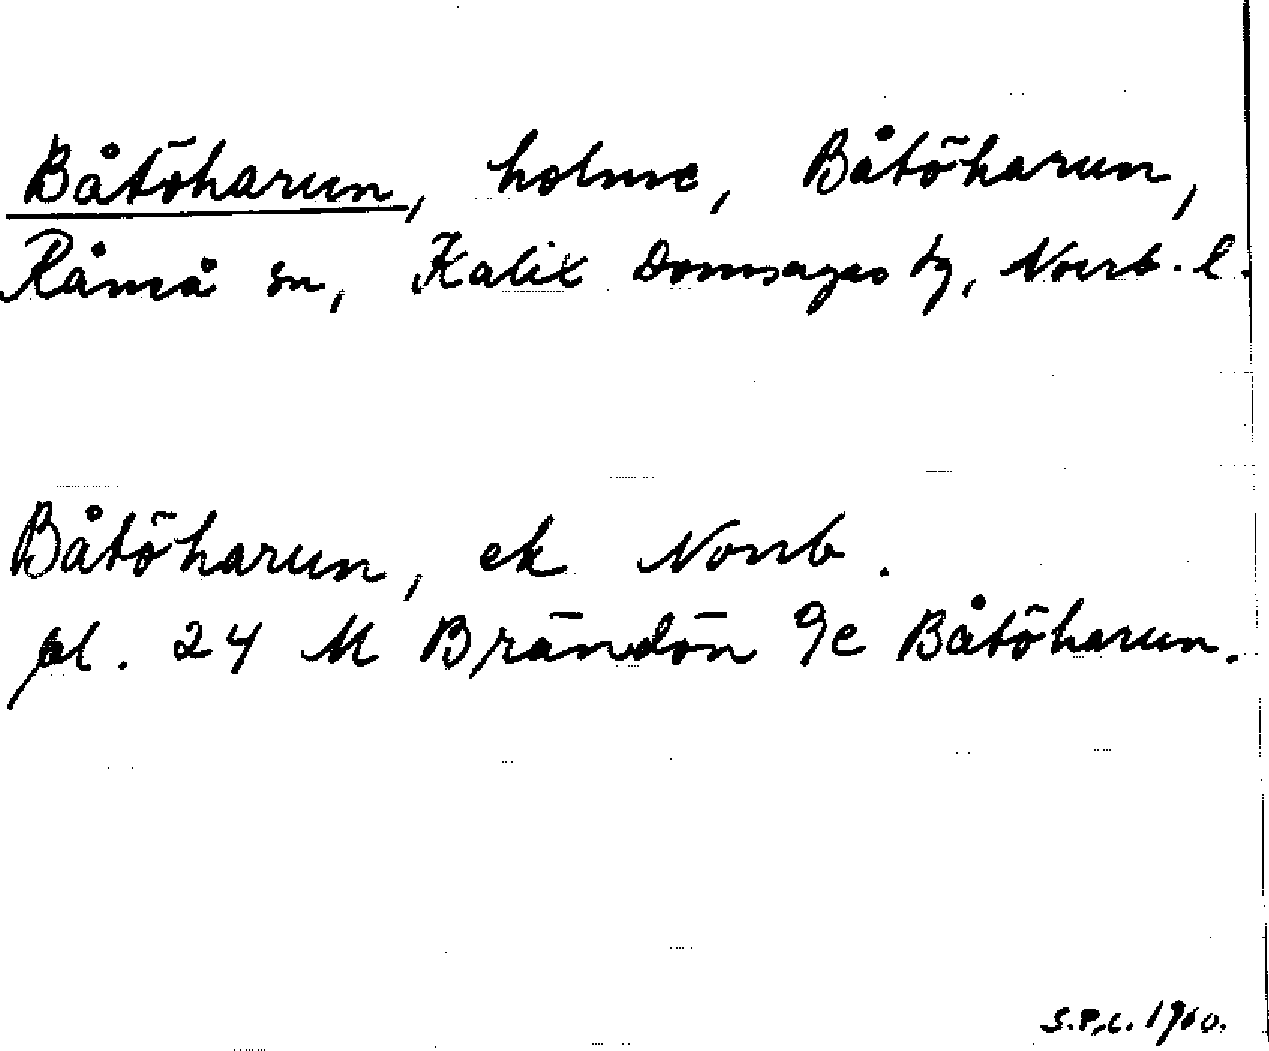 Båtöharun, holme, Båtöharun,
Råneå sn, Kalix Domsagas tg, Norrb. l.
Båtöharun, ek Norrb.
bl. 24 M Brändön 9c Båtöharun.
S.P,c. 1960.